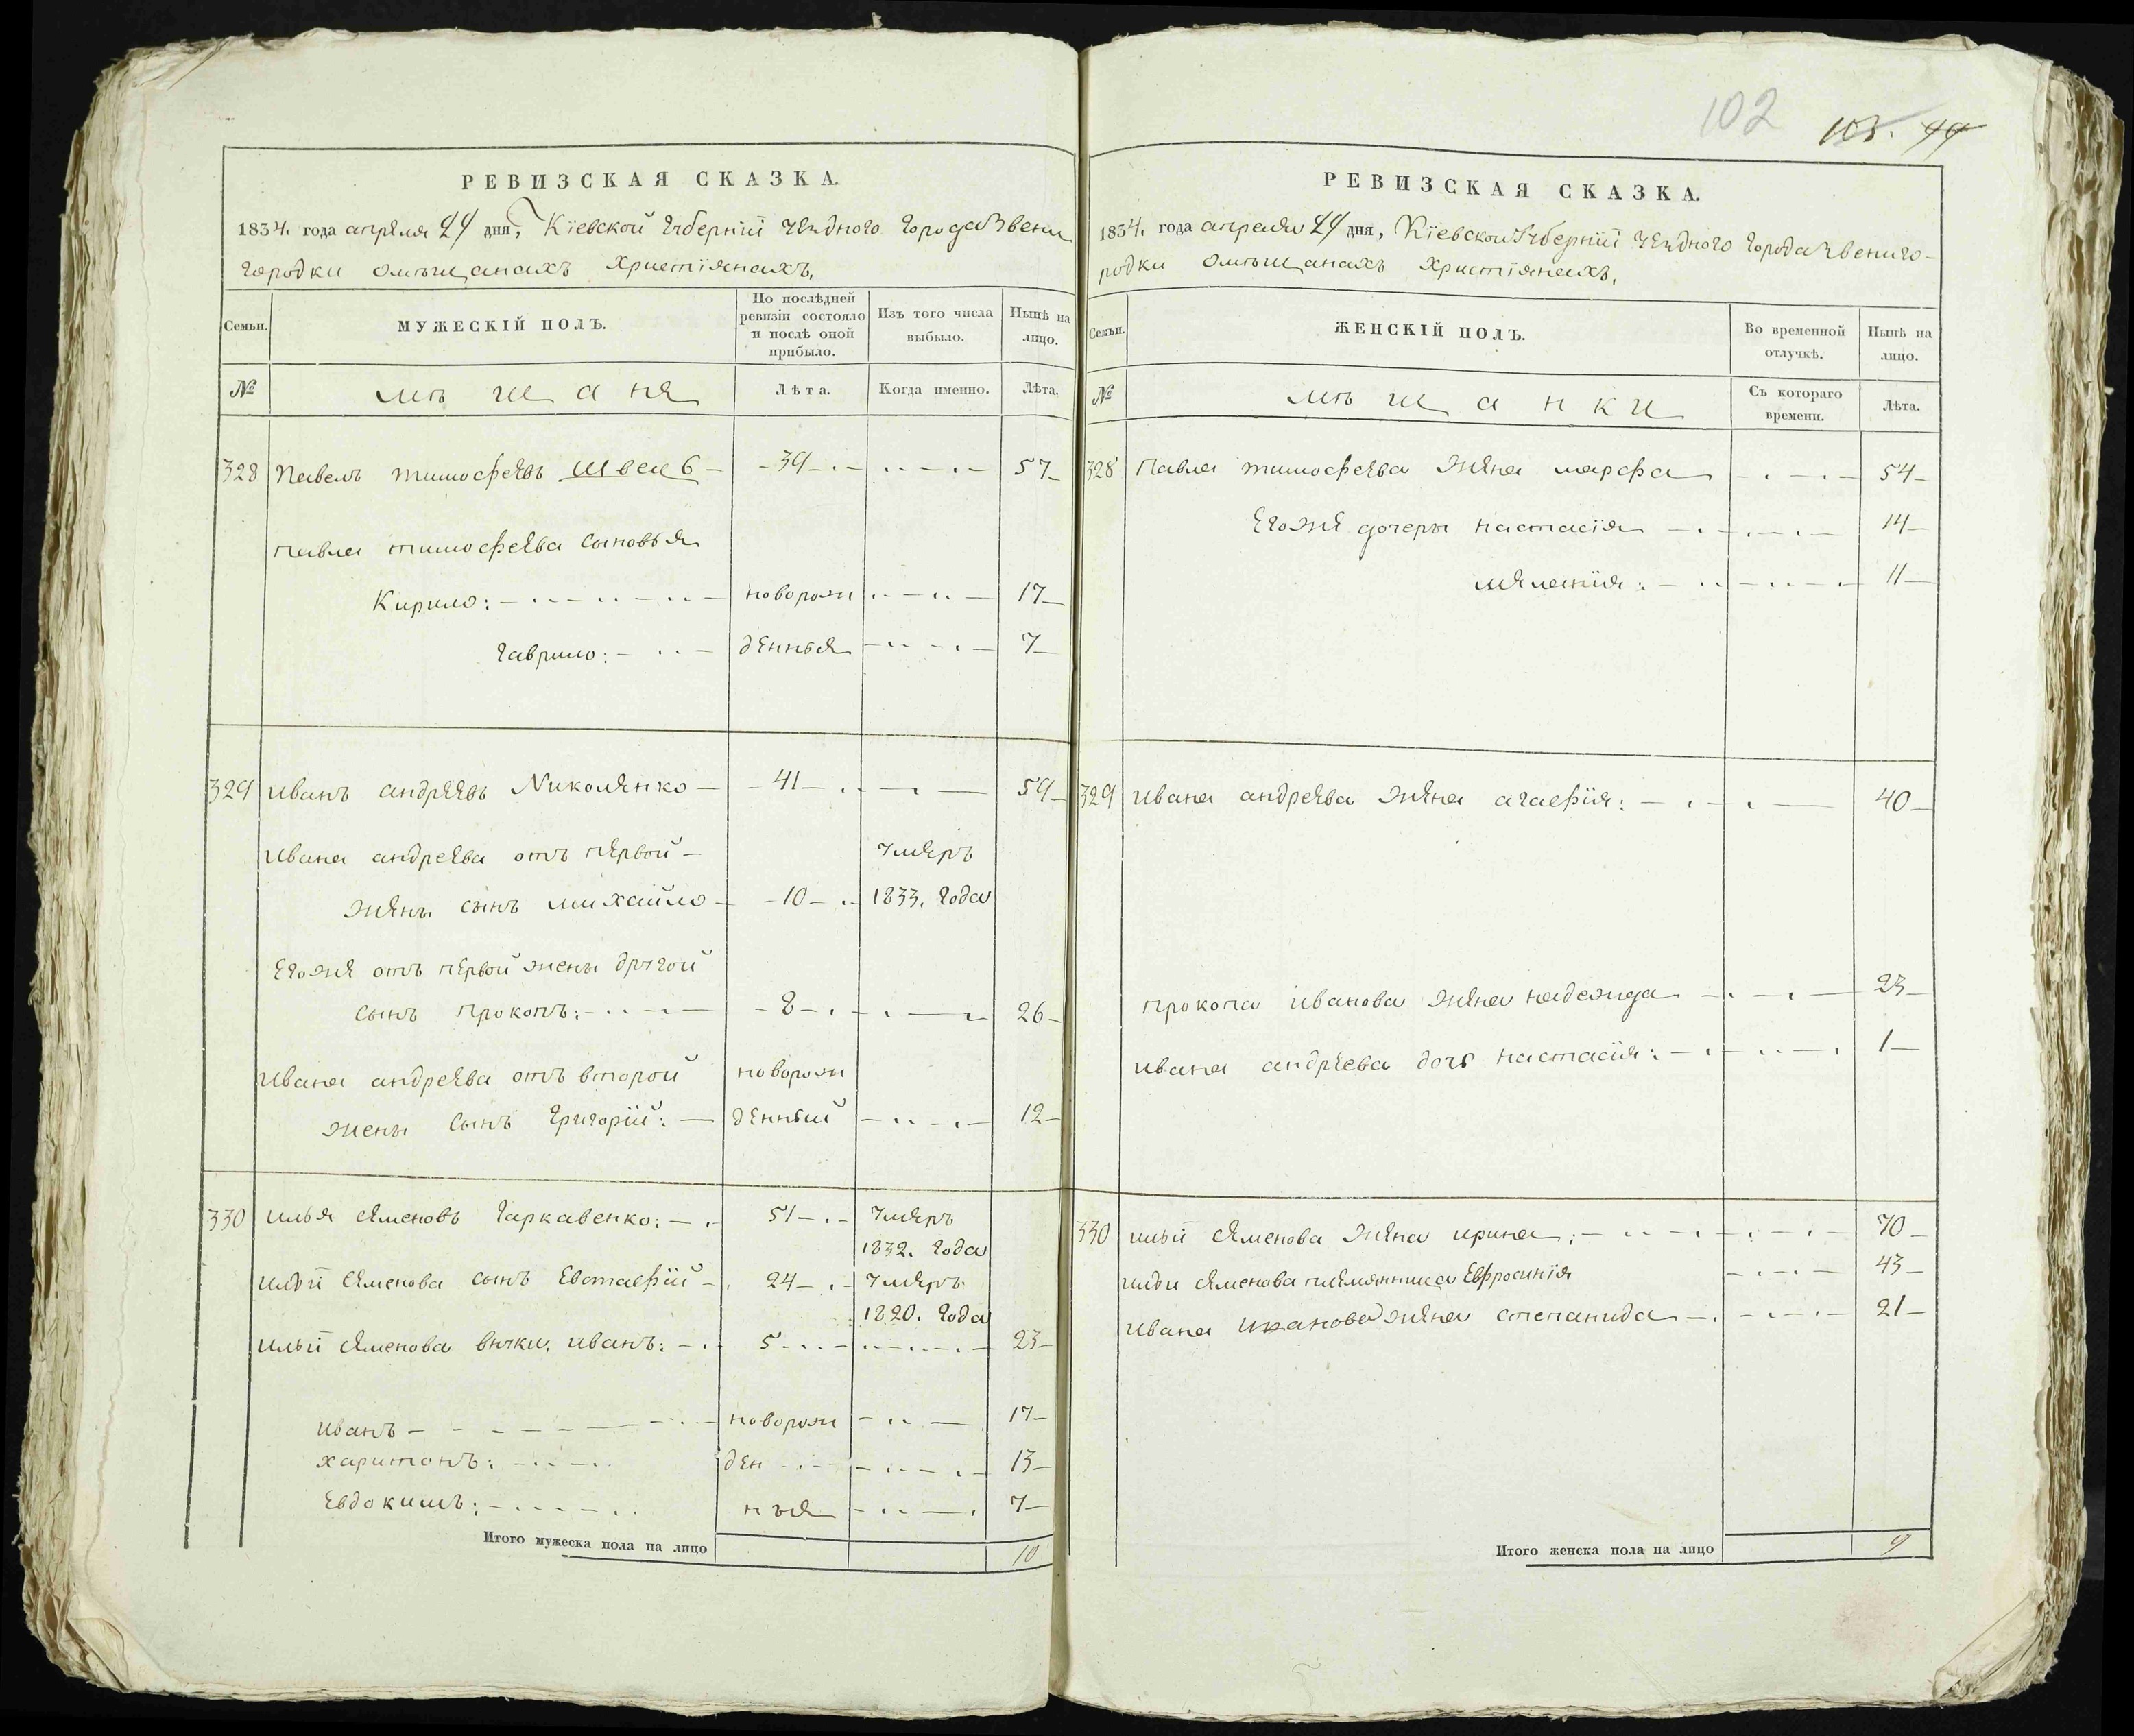 102 103. 99
РЕВИЗСКАЯ СКАЗКА.
1834. года апреля 24 дня, Кіевской губерніи уездного города Звени
городки омещанахъ христіянахъ,
Семьи.
МУЖЕСКІЙ ПОЛЪ.
По послѣдней ревизіи состояло и послѣ оной прибыло.
Изъ того числа выбыло.
Нынѣ на лицо.
№
мещаня
Лѣта.
Когда именно.
Лѣта.
328 Павелъ тимофеевъ швець 39 57
павла тимофеева сыновья
Кирило: новорож 17
гаврило: денныя 7
329 иванъ андреевъ Николенко 41 59
ивана андреева отъ первой умеръ
жены сынъ михайло 10 1833. года
егоже отъ первой жены другой
сынъ прокопъ: 8 26
ивана андреева отъ второй новорож
жены сынъ григорій: денный 12
330 илья семеновъ гаркавенко: 51 умеръ
1832. года
ильи семенова сынъ евстафій 24 умеръ
1820. года
ильи семенова внуки, иванъ: 5 23
иванъ новорож 17
харитонъ: ден 13
евдокимъ: ныя 7
Итого мужеска пола на лицо 10
РЕВИЗСКАЯ СКАЗКА.
1834. года апреля 24 дня, Кіевской губерніи уездного города Звениго-
родки омещанахъ христіянахъ,
Семьи.
ЖЕНСКІЙ ПОЛЪ.
Во временной отлучкѣ.
Нынѣ на лицо.
№
мещанки
Съ котораго времени.
Лѣта.
328 павла тимофеева жена марфа 54
егоже дочеры настасія 14
меланія: 11
329 ивана андреева жена агафія: 40
прокопа иванова жена надежда 23
ивана андреева дочь настасія: 1
330 ильи семенова жена ирина: 70
ильи семенова племянница Евфросинія 43
ивана иванова жена степанида 21
Итого женска пола на лицо 9